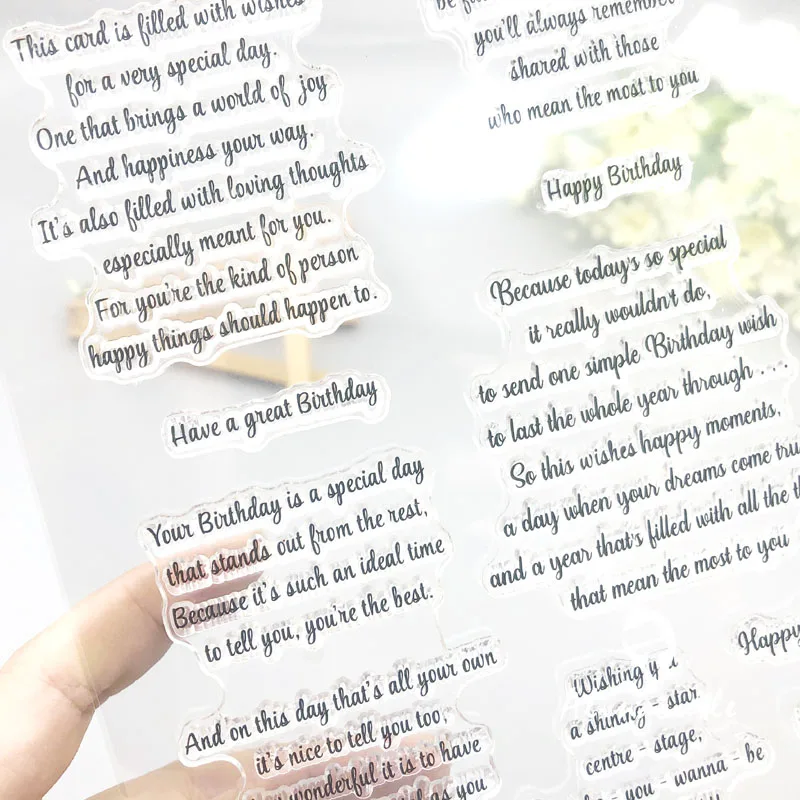 This card is filled with wishes
for a very special day.
One that brings a world of joy
And happiness your way.
It's also filled with loving thoughts
especially meant for you.
For you're the kind of person
happy things should happen to.
Have a great Birthday
Your Birthday is a special day
that stands out from the rest,
Because it's such an ideal time
to tell you, you're the best.
And on this day that's all your own
it's nice to tell you too,
wonderful it is to have
as you
you'll always remember
shared with those
who mean the most to you
Happy Birthday
Because today's so special
it really wouldn't do,
to send one simple Birthday wish
to last the whole year through ....
So this wishes happy moments,
a day when your dreams come tru
and a year that's filled with all the
that mean the most to you
Happy
Wishing
a shining - star
centre - stage,
you - wanna - be